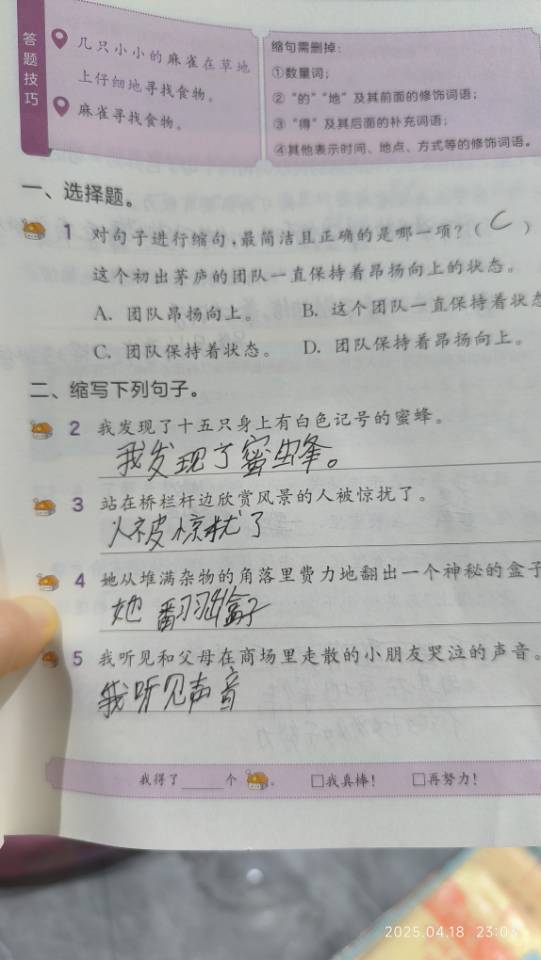 答题技巧
几只小小的麻雀在草地
上仔细地寻找食物。
麻雀寻找食物。
缩句需删掉:
①数量词;
②“的”“地”及其前面的修饰词语;
③“得”及其后面的补充词语;
④其他表示时间、地点、方式等的修饰词语。
一、选择题。
1 对句子进行缩句,最简洁且正确的是哪一项?( C )
这个初出茅庐的团队一直保持着昂扬向上的状态。
A. 团队昂扬向上。 B. 这个团队一直保持着状态
C. 团队保持着状态。 D. 团队保持着昂扬向上。
二、缩写下列句子。
2 我发现了十五只身上有白色记号的蜜蜂。
我发现了蜜蜂。
3 站在桥栏杆边欣赏风景的人被惊扰了。
人被惊扰了
4 她从堆满杂物的角落里费力地翻出一个神秘的盒子
她翻出盒子
5 我听见和父母在商场里走散的小朋友哭泣的声音。
我听见声音
我得了____个 。 □我真棒! □再努力!
2025.04.18